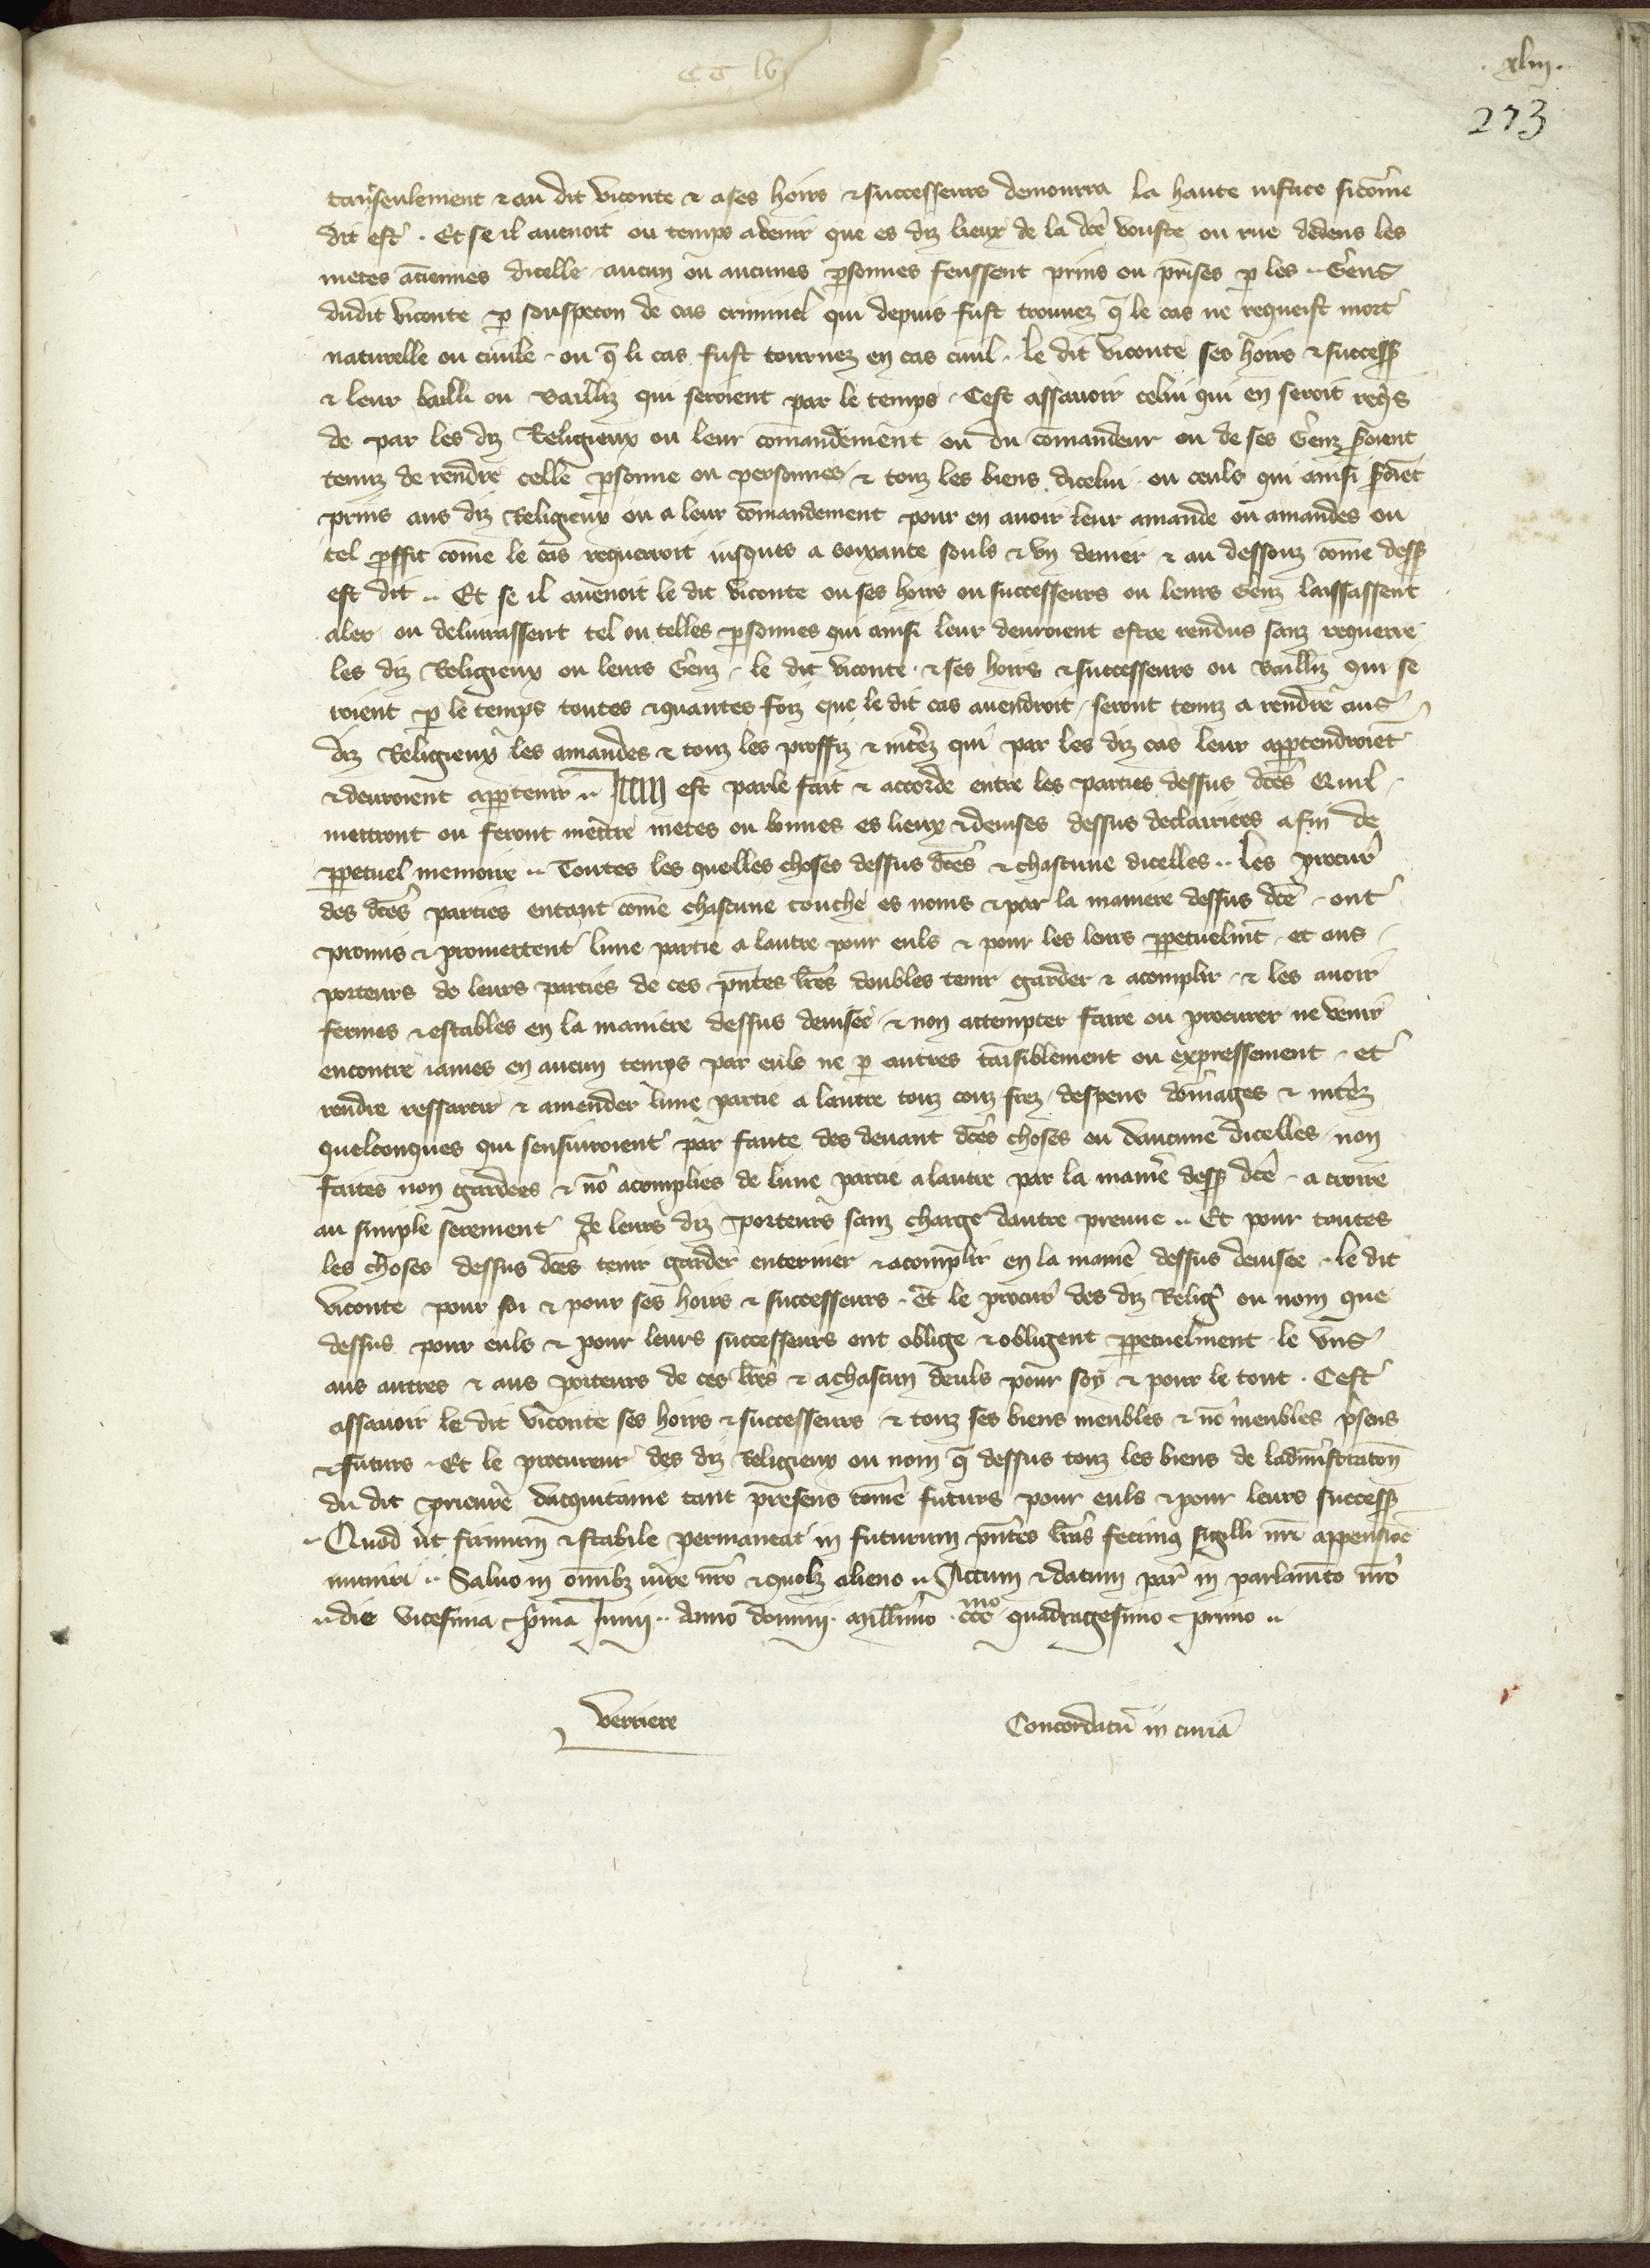 CC lvi
.xliii.
273
tant seulement & au dit viconte & a ses hoirs & successeurs demourra la haute iustice si cōme
dit est . Et se il auenoit ou temps a venir que es diz lieux de la dc̄e vouste ou rue dedens les
metes anc̄iennes dicelle aucun ou aucunes p̱sonnes feussent prins ou p̄rises p̱ les .. Genz
dudit viconte p̱ souspecon de cas criminel qui depuis fust trouuez q̄ le cas ne requeist mort
naturelle ou ciuile . ou q̄ li cas fust tournez en cas ciuil . le dit viconte ses hoirs & success̄
& leur bailli ou Bailliz qui seroient par le temps . Cest assauoir celui qui en seroit req̇s
de par les diz Religieux ou leur cōmandement ou du cōmandeur ou de ses Genz s̄oient
tenuz de rendre celle p̱sonne ou personnes / & touz les biens dicelui . ou ceuls qui ainsi s̄oiēt
prins aus diz Religieux ou a leur cōmandement pour en auoir leur amande ou amandes ou
tel p̱ffit cōme le cas requerroit iusques a soixante souls & vn denier & au dessouz cōme dess̄
est dit .. Et se il auenoit le dit viconte ou ses hoirs ou successeurs ou leurs Genz laissassent
aler ou deliurassent tel ou telles p̱sonnes qui ainsi leur deuroient estre rendus sanz requerre
les diz Religieux ou leurs Genz . le dit viconte . & ses hoirs & successeurs ou Bailliz qui se
roient p̱ le temps toutes & quantes foiz que le dit cas auendroit / seront tenuz a rendre aus
diz Religieux les amandes & touz les proffiz & int̄ez qui par les diz cas leur app̱tendroiēt
& deuroient app̱tenir .. Item est parle fait & accorde entre les parties dessus dc̄es Quil
mettront ou feront mettre metes ou bonnes es lieux & deuises dessus declairiees a fin de
p̱petuel memoire .. Toutes les quelles choses dessus dc̄es & chascune dicelles .. Les procur̄
des dc̄es parties entant cōme chascune touche es noms & par la maniere dessus dc̄e . ont
promis & promettent lune partie a lautre pour euls & pour les leurs p̱petuelm̄t . et aus
porteurs de leurs parties de ces p̄ntes lr̄es doubles tenir garder & acomplir . & les auoir
fermes & estables en la maniere dessus deuisee . & non attempter faire ou procurer ne venir
encontre iames en aucun temps par euls ne p̱ autres taisiblement ou expressement . et
rendre ressarcir & amender lune partie a lautre touz couz frez / despens dōmages & int̄ez
quelconques qui sensuiuroient par faute des deuant dc̄es choses ou daucune dicelles . non
faites non gardees & nō acomplies de lune partie a lautre par la manie͛ dess̄ dc̄e . a croire
au simple serement de leurs diz porteurs sanz charge dautre preuue .. Et pour toutes
les choses dessus dc̄es tenir garder enteriner & acomplir en la manie͛ dessus deuisee . le dit
viconte pour soi & pour ses hoirs & successeurs . Et le procur̄ des diz Reliḡ ou nom que
dessus pour euls & pour leurs successeurs ont oblige & obligent p̱petuelment . le vns
aus autres & aus porteurs de ces lr̄es & a chascun deuls pour soy & pour le tout . Cest
assauoir le dit viconte ses hoirs & successeurs . & touz ses biens meubles & nō meubles p̄sens
& futurs . Et le procureur des diz Religieux ou nom q̄ dessus touz les biens de ladministracōn
du dit prieure dacquitaine tant presens cōme futurs pour euls & pour leurs success̄
.. Quod ut firmum & stabile permaneat in futurum p̄ntes lr̄as fecimꝰ sigilli nr̄i appensiōe
muniri .. Saluo in omībz iure nr̄o & quolz alieno .. Actum & datum par̄ in parlam̄to nr̄o
.. die vicesima p̄ma Junii .. Anno domini . mill̄imo . cccmo quadragesimo primo ..
Verriere
Concordatū in curiā